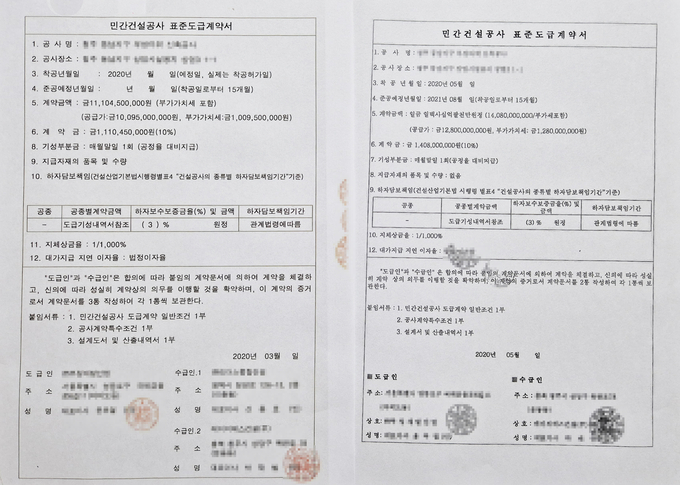 민간건설공사 표준도급계약서
1. 공 사 명 :
2. 공사장소 :
3. 착공년월일 : 2020년 월 일(예정일, 실제는 착공허가일)
4. 준공예정년월일 : 년 월 일(착공일로부터 15개월)
5. 계약금액 : 금11,104,500,000원 (부가가치세 포함)
(공급가:금10,095,000,000원, 부가가치세:금1,009,500,000원)
6. 계 약 금 : 금1,110,450,000원(10%)
8. 기성부분금 : 매월말일 1회 (공정율 대비지급)
9. 지급자재의 품목 및 수량
10. 하자담보책임(건설산업기본법시행령별표4 "건설공사의 종류별 하자담보책임기간"기준)
공종 공종별계약금액 하자보수보증금율(%) 및 금액 하자담보책임기간
- 도급기성내역서참조 ( 3 ) % 원정 관계법령에따름
11. 지체상금율 : 1/1,000%
12. 대가지급 지연 이자율 : 법정이자율
"도급인"과 "수급인"은 합의에 따라 붙임의 계약문서에 의하여 계약을 체결하
고, 신의에 따라 성실히 계약상의 의무를 이행할 것을 확약하며, 이 계약의 증거
로서 계약문서를 3통 작성하여 각 1통씩 보관한다.
붙임서류 : 1. 민간건설공사 도급계약 일반조건 1부
2. 공사계약특수조건 1부
3. 설계도서 및 산출내역서 1부
2020년 03월 일
도 급 인
주 소
성 명
수급인.1
주 소
성 명
수급인.2
주 소
성 명
민간건설공사 표준도급계약서
1. 공 사 명 :
2. 공사장소 :
3. 착 공 년월일 : 2020년 05월 일
4. 준공예정년월일 : 2021년 08월 일(착공일로부터 15개월)
5. 계약금액 : 일금 일백사십억팔천만원정 (14,080,000,000/부가세포함)
(공급가 : 금12,800,000,000원, 부가가치세: 금1,280,000,000원)
6. 계 약 금 : 금 1,408,000,000원(10%)
7. 기성부분금 : 매월말일 1회(공정율 대비지급)
8. 지급자재의 품목 및 수량 : 없음
9. 하자담보책임(건설산업기본법 시행령 별표4 "건설공사의 종류별 하자담보책임기간"기준)
공종 공종별계약금액 하자보수보증금율(%) 및 금액 하자담보책임기간
- 도급기성내역서참조 (3) % 원정 관계법령에 따름
10. 지체상금율 : 1/1,000%
12. 대가지급 지연 이자율 :
"도급인"과 "수급인"은 합의에 따라 붙임의 계약문서에 의하여 계약을 체결하고, 신의에 따라 성실
히 계약 상의 의무를 이행할 것을 확약하며, 이 계약의 증거로서 계약문서를 2통 작성하여 각 1통씩 보
관한다.
붙임서류 : 1. 민간건설공사 도급계약 일반조건 1부
2. 공사계약특수조건 1부
3. 설계서 및 산출내역서 1부
2020년 05월 일
도급인
주 소:
상 호:
성 명:
수급인
주 소:
상 호:
성 명: